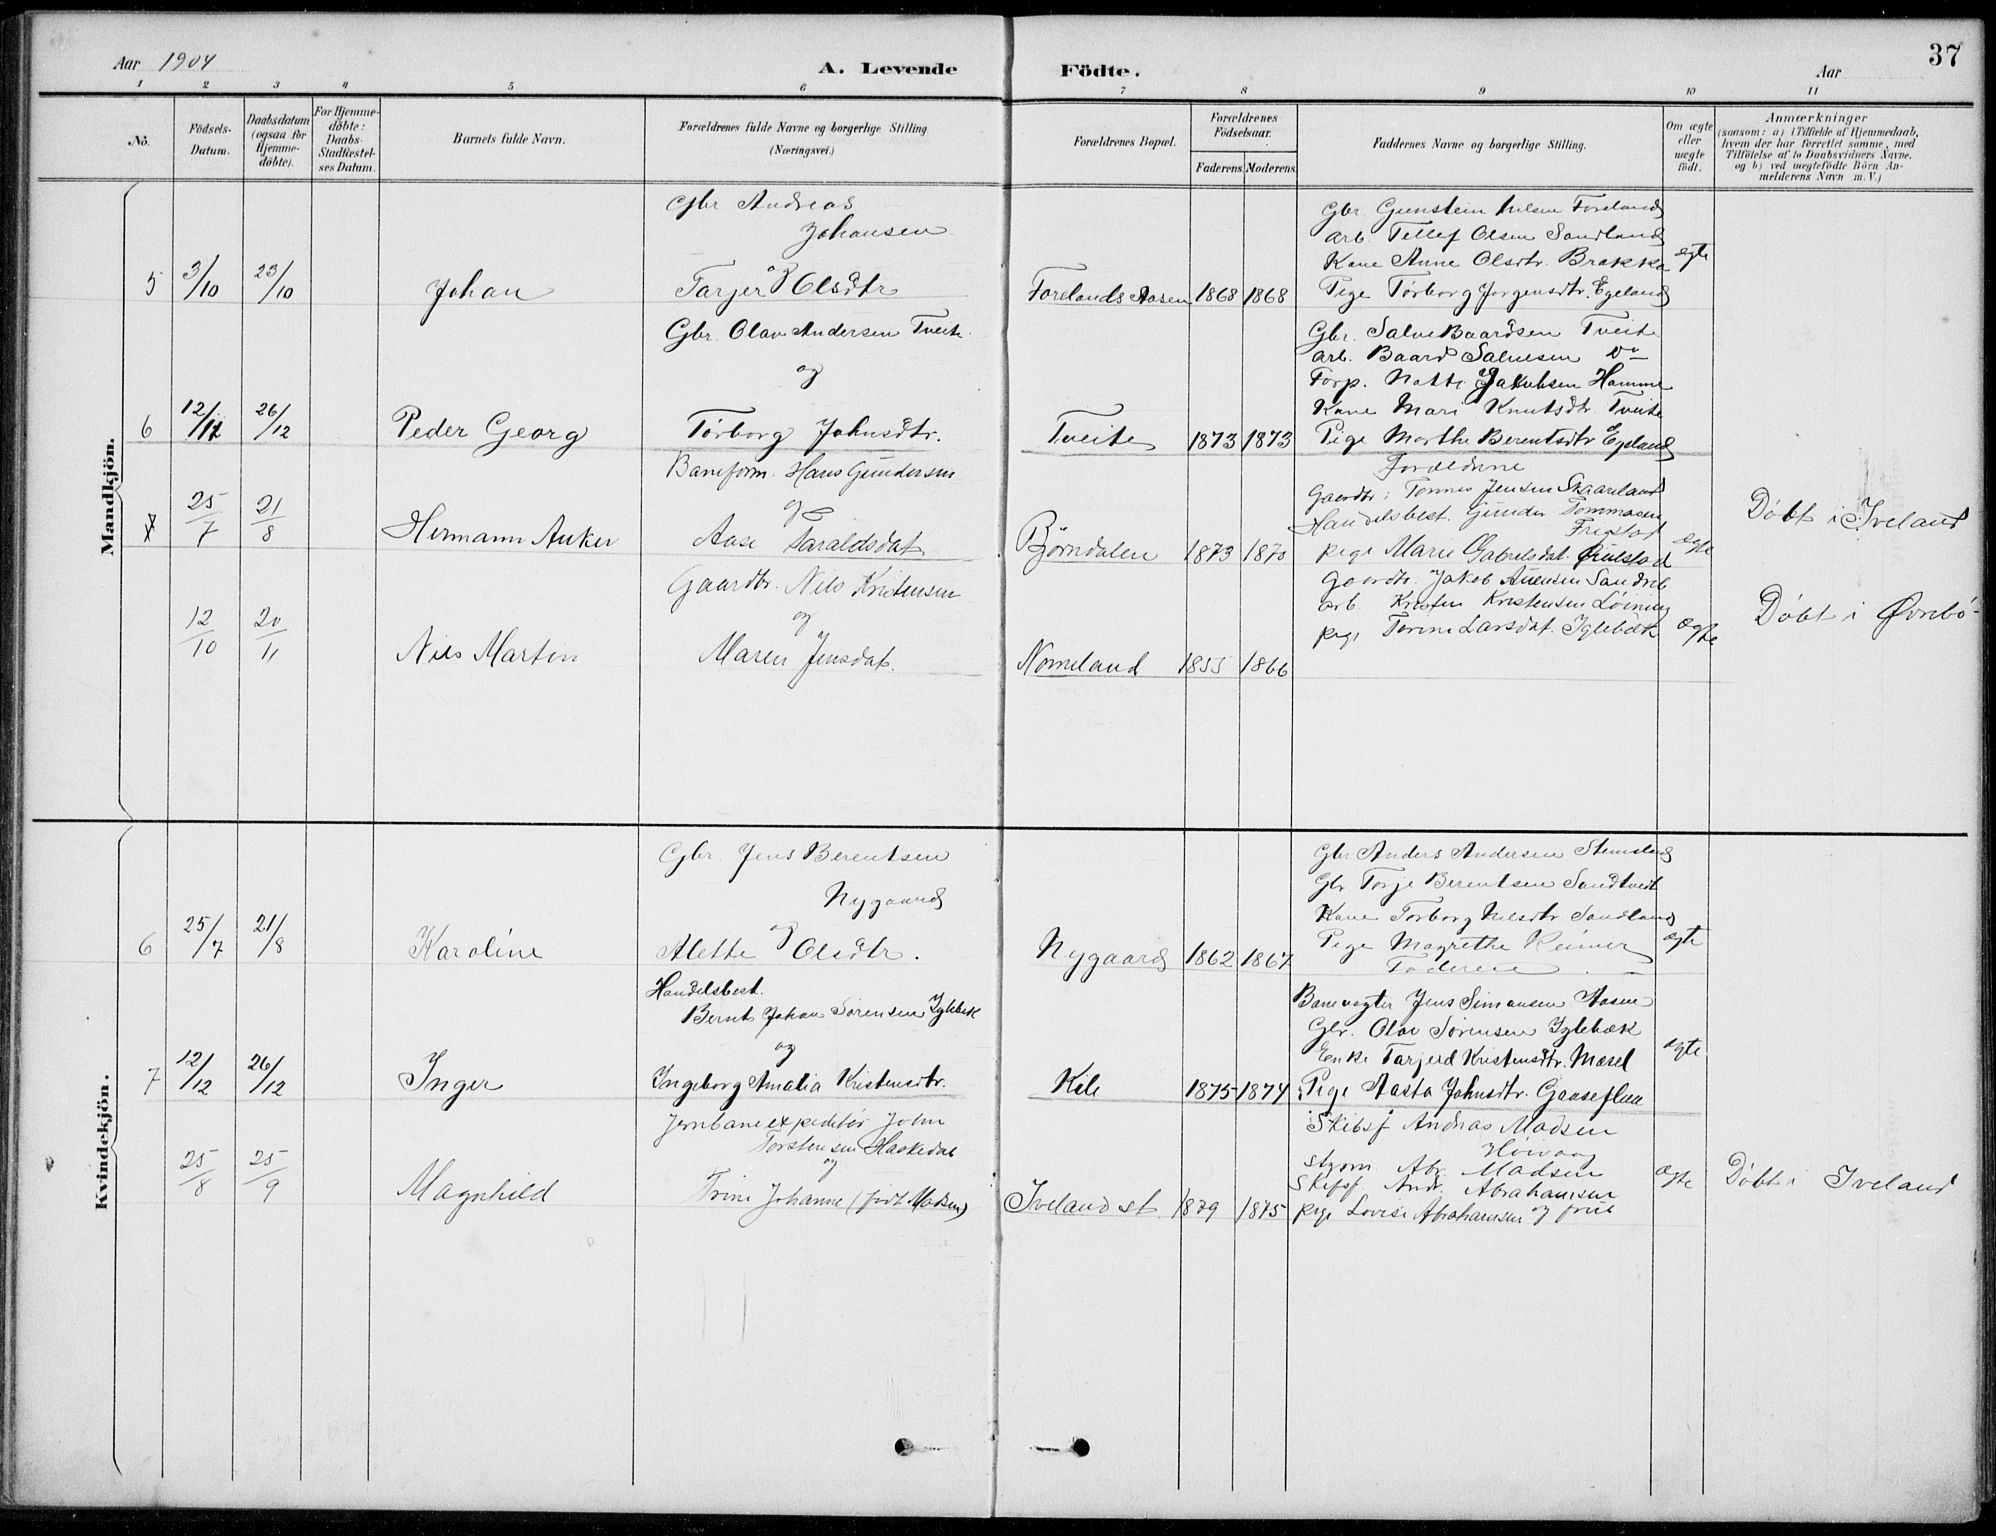 Aar 1904
A. Levende Födte.
Aar
37
1 2 3 4 5 6 7 8 9 10 11
No.
Födsels-
Datum.
Daabsdatum
(ogsaa for
Hjemme-
døbte).
For Hjemme-
døbte:
Daabs-
Stadfæstel-
ses Datum.
Barnets fulde Navn.
Forældrenes fulde Navne og borgerlige Stilling.
(Næringsvei.)
Forældrenes Bopæl.
Forældrenes
Födselsaar.
Faderens. Moderens.
Faddernes Navne og borgerlige Stilling.
Om ægte
eller
uægte
födt.
Anmærkninger
(saasom: a) i Tilfælde af Hjemmedaab,
hvem der har forrettet samme, med
Tilföielse af to Daabsvidners Navne,
og b) ved uægtefödte Börn An-
melderens Navn m. V.)
Mandkjön.
5 3/10 23/10 Johan
Gbr Andreas
Johansen
og
Tarjer Olsdtr
Forelands Aasen 1868 1868
Gbr. Gunstein Nilsen Foreland
Arb. Tellef Olsen Sandland
Kone Anne Olsdtr. Brakka
Pige Tørborg Jørgensdtr. Egeland
egte
6 12/12 26/12 Peder Georg
Gbr. Olav Andersen Tveite
og
Tørborg Johnsdtr.
Tveite 1873 1873
Gbr. Salve Baardsen Tveite
Arb. Baard Salvesen Do
Forp. Jakobsen Hamme
Kone Mari Knutsdtr. Tveite
Pige Marthe Berentsdtr Egeland
Forældrene
7 25/7 21/8 Hermann Anker
Baneform. Hans Gundersen
og
Aase Haraldsdat
Bjørndalen 1873 1870
Gaardbr: Tønnes Jensen Skaareland
Handelsbest. Gunder Tommasen
Frigstad
pige Marie Gabrielsdat.
ægte
Døbt i Iveland
12/10 20/11 Nils Martin
Gaardbr. Nils Kristensen
og
Maren Jensdat.
Nomeland 1855 1866
Gaardbr. Jakob Auensen Sandrib
arb. Kristen Kristensen Løining
pige Tomine Larsdat. Iglebæk
ægte
Døbt i Øvrebø-
Kvindekjön.
6 25/7 21/8 Karoline
Gbr. Jens Berentsen
Nygaard
og
Alette Olsdtr.
Nygaard 1862 1867
Gbr Anders Andersen Stemsland
Gbr Torje Berentsen Sandtveit
Kone Torborg Nilsdtr. Sandland
Pige Magrethe Reimer
Faderen
egte
7 12/12 26/12 Inger
Handelsbest.
Bernt Johan Sørensen Iglebæk
og
Ingeborg Amalia Kristensdtr.
Kile 1875 1874
Banevogter Jens Simonsen Aasen
Gbr. Olav Sørensen Iglebæk
Enke Tarjerd Kristensdtr. Mæsel
Pige Aasta Johnsdtr. Gaaseflaa
egte
25/8 25/9 Magnhild
Jernbaneexpeditør John
Torstensen Haakedal
og
Trine Johanne (født Madsen)
Iveland st. 1879 1875
Skibsf Andreas Madsen
Høivaag
styrm Abr. Madsen
Skipsf. Andr. Abrahamsen
pige Lovise Abrahamsen og frue
ægte
Døbt i Iveland